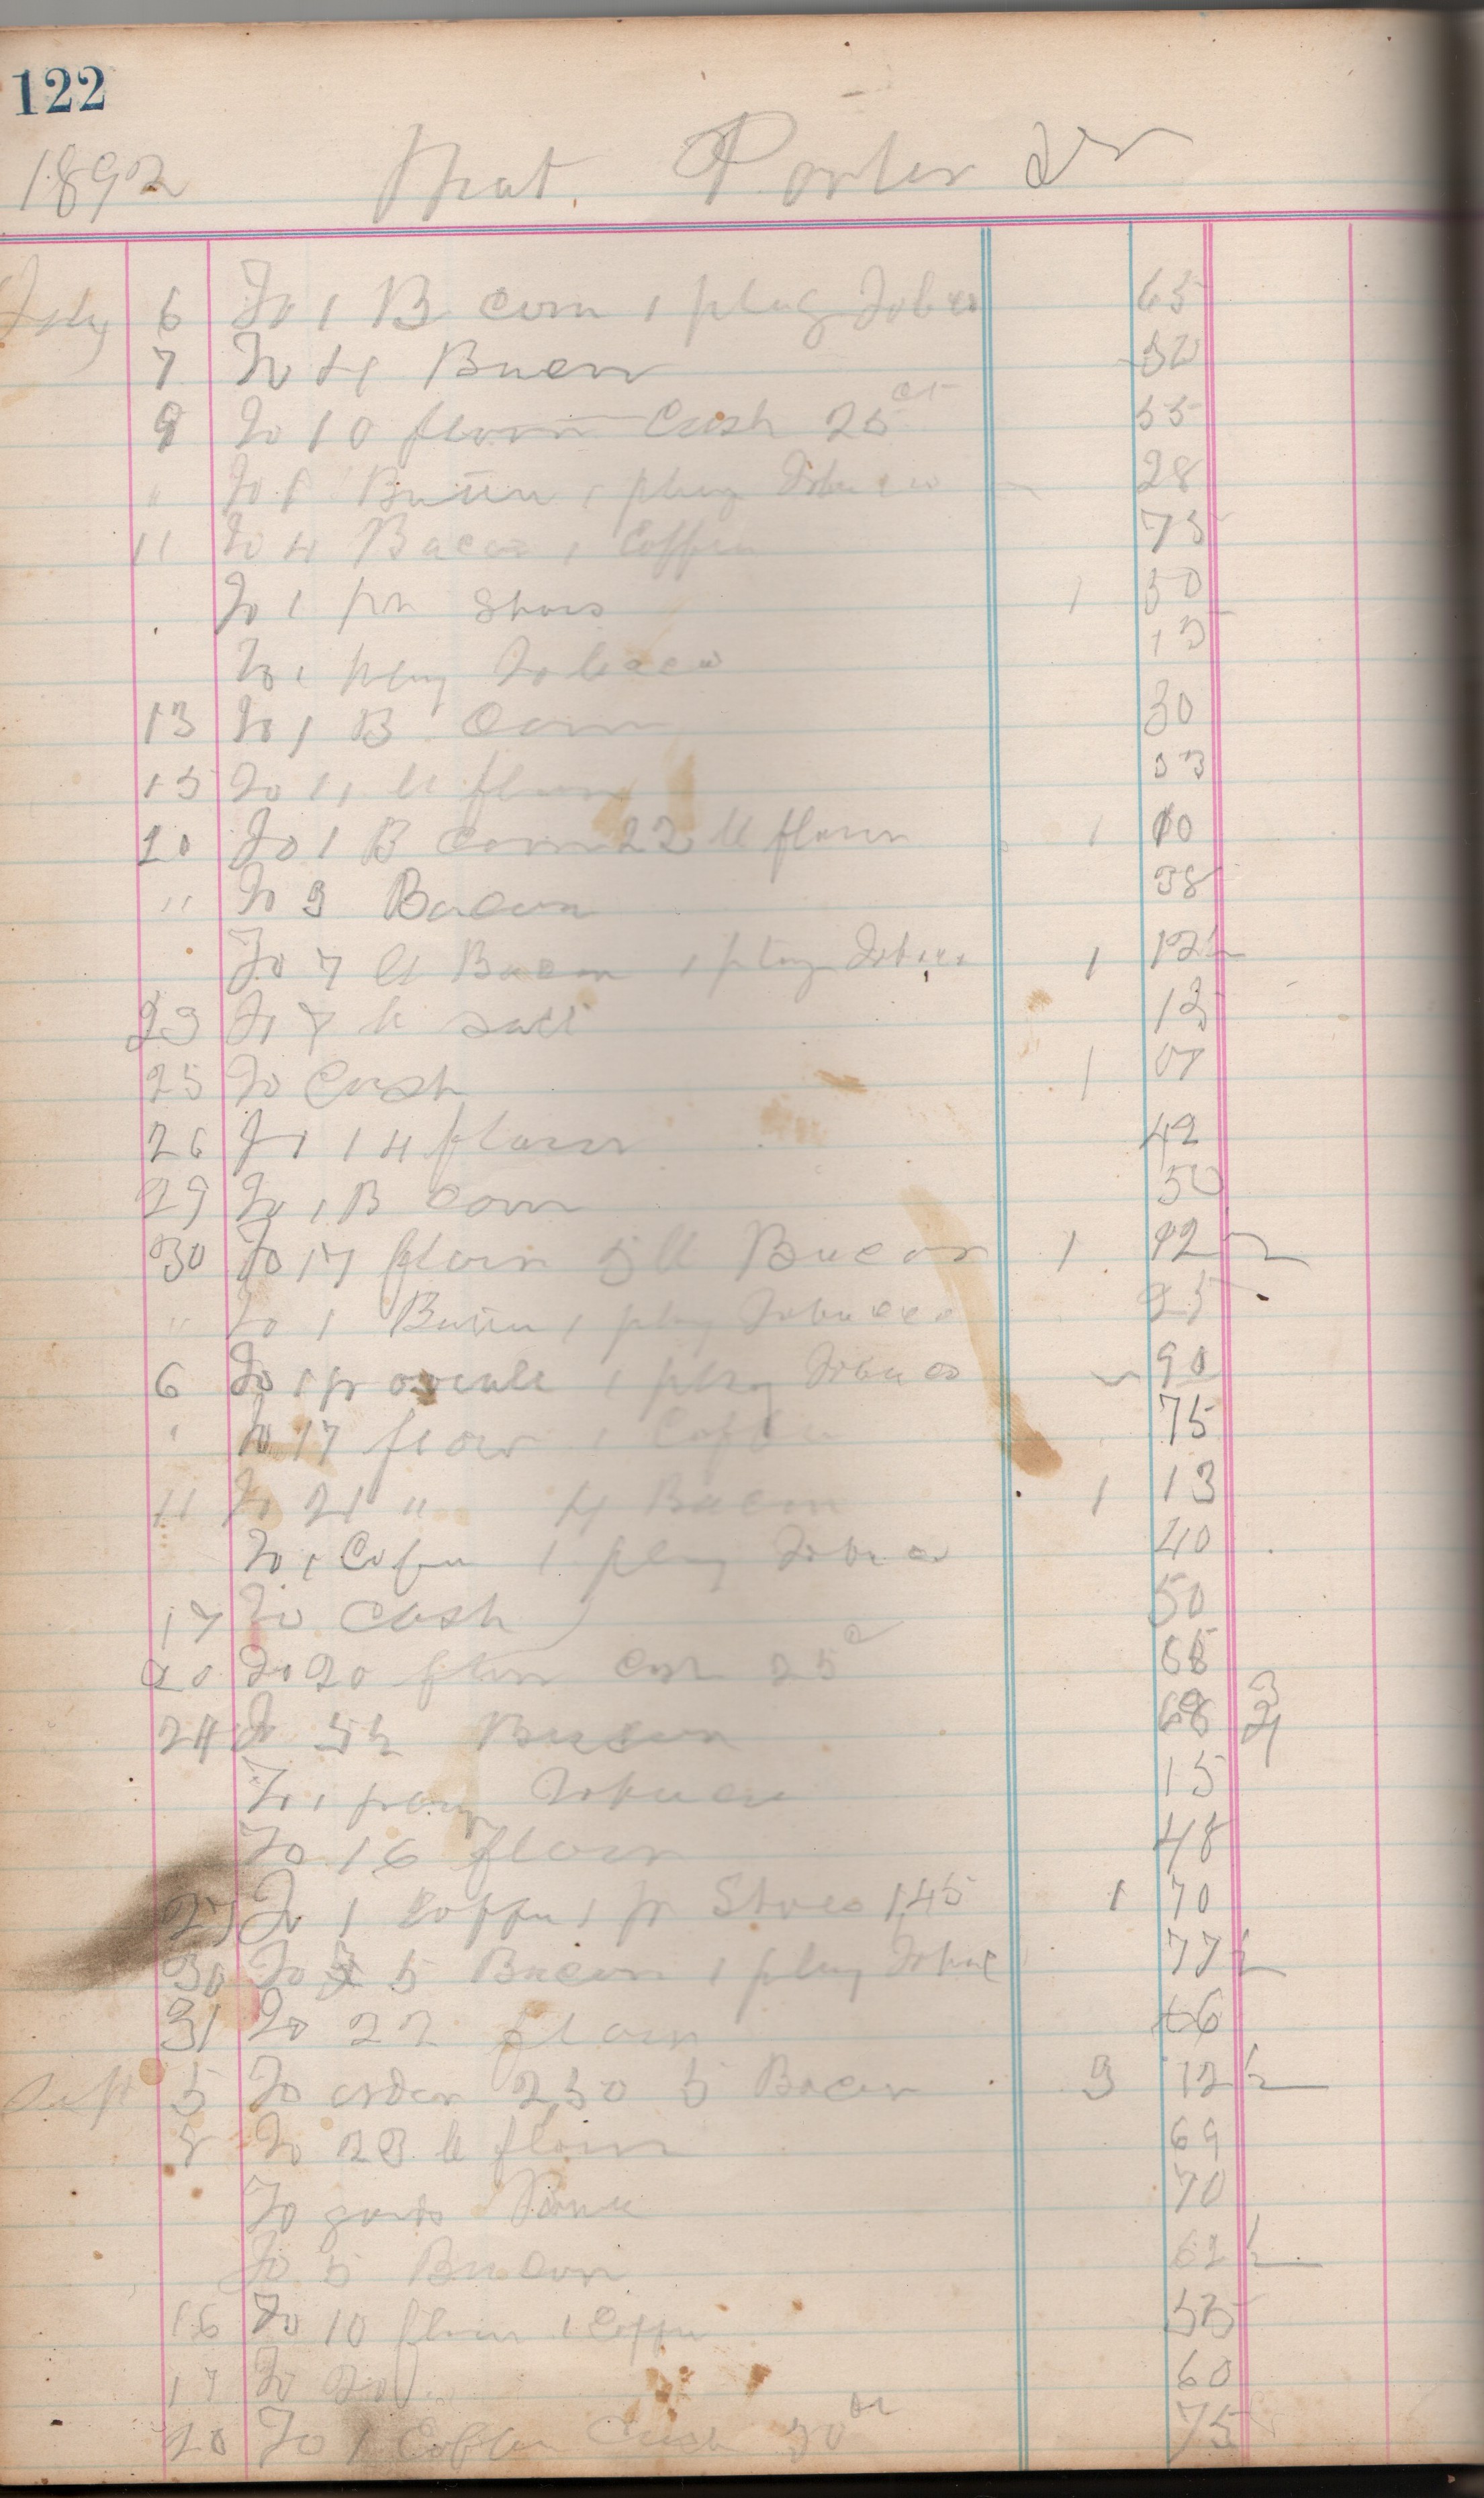 122
1892 Nat. Porter Dr
July 6 To 1 B corn 1 plug Tobaco 65
7 To 4 Bacon 50
9 To 10 flour Cash 25 ct 55
" To 1 Butter 1 plug Tobacco 28
11 To 4 Bacon 1 Coffee 75
To 1 pr Shoes 1 50
To 1 plug Tobacco 15
13 To 1 B Corn 50
15 To 11 lb flour 33
20 To 1 B corn 22 lb flour 1 10
" To 3 Bacon 38
To 7 lb Bacon 1 plug Tobaco 1 12½
23 To 7 lb salt 15
25 To Cash 1 00
26 To 14 flour 42
29 To 1 B corn 50
30 To 17 flour 5 lb Bacon 1 12½
" To 1 Butter 1 plug Tobacco 25
6 To 1 pr overalls 1 plug Tobaco 90
" To 17 flour 1 Coffee 75
11 To 21 " 4 Bacon 1 13
To 1 Cofee 1 plug Tobaco 40
17 To Cash 50
20 To 20 flour Cash 25 c 85
24 To 5½ Bacon 68 ¾
To 1 plug Tobacco 15
To 16 flour 48
27 To 1 Coffee 1 pr Shoes 1,45 1 70
30 To 5 Bacon 1 plug Tobac 77½
31 To 22 flour 66
Sept 5 To order 2,50 5 Bacon 3 12½
8 To 23 lb flour 69
To goods 70
To 5 Bacon 62½
16 To 10 flour 1 Coffee 55
17 To 20 60
20 To 1 Coffee Cash 50 ct 75